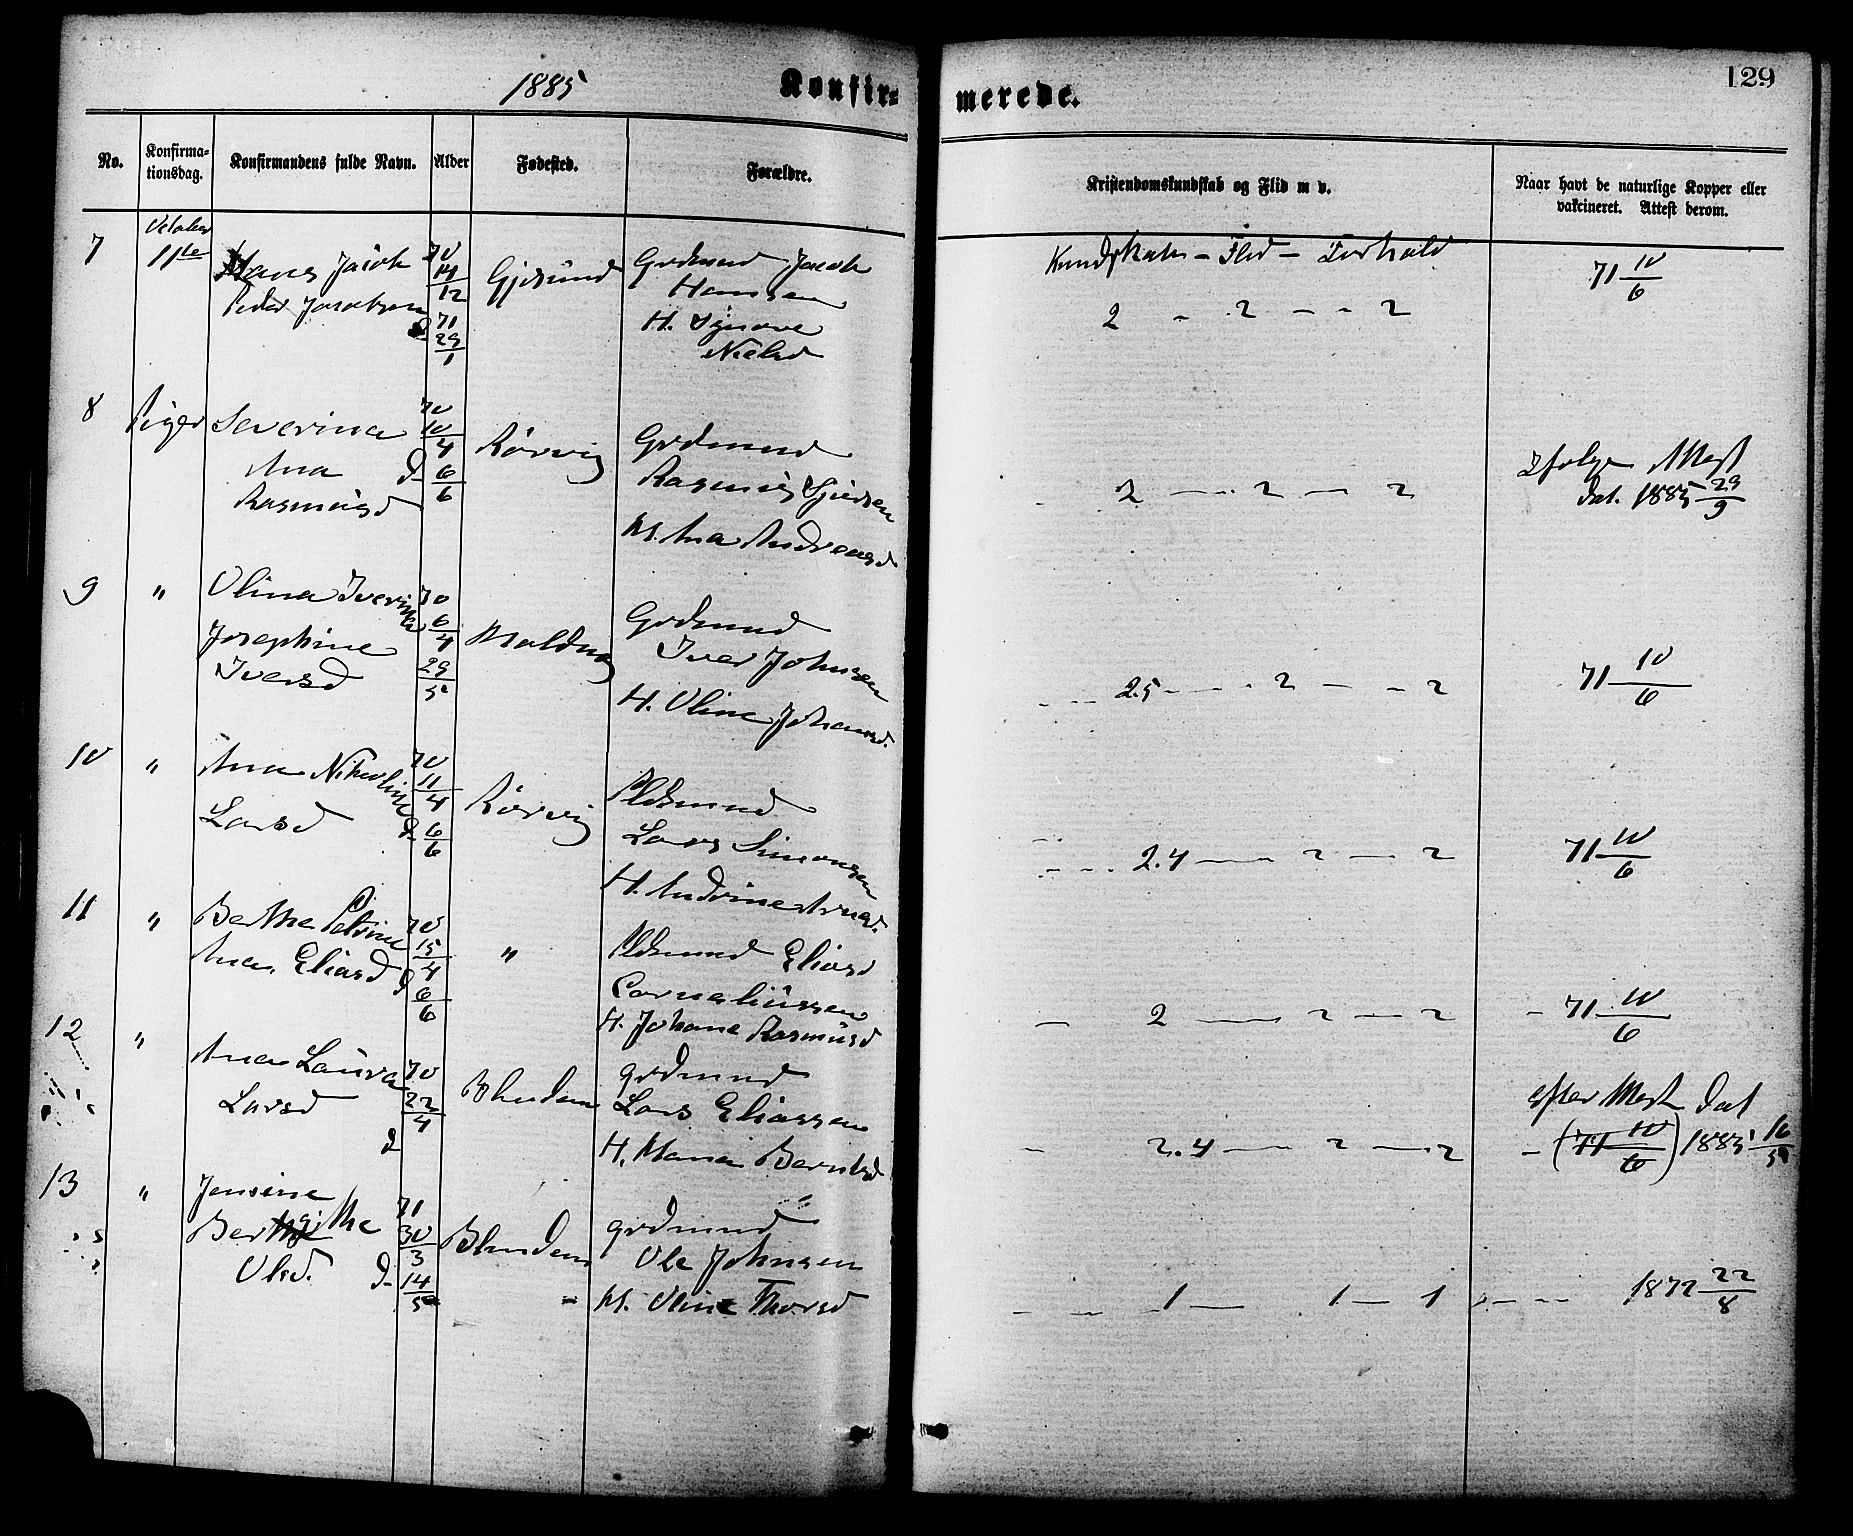 1885
Konfir=
merede.
129
No.
Konfirma-
tionsdag.
Konfirmandens fulde Navn.
Alder
Fødested.
Forældre.
Kristendomskundskab og Flid m v.
Naar havt de naturlige Kopper eller
vakcineret. Attest derom.
7
October
11te
Hans Jacob
Peder Jacobsen
70
14/12
d 71
29/1
Gjøsund
Grdmand Jacob
Hansen
H. Synove
Nielsd
Kundskab - Flid - Forhold
2 - 2 - - 2
71 10/6
8
Piger
Severina
Ana
Rasmusd
70
10/4
d 6/6
Rørvig
Grdmand
Rasmus Sjursen
M. Ana Andreasd
2 - 2 - 2
Ifølge Attest
dat. 1885 29/9
9
"
Olina Iverine
Josephine
Iversd
70
6/4
29/5
Moldnæs
Grdmand
Iver Johnsen
H. Oline Johansd.
2.5 - 2 - 2
71 10/6
10
"
Ana Nikoline
Larsd
70
11/4
d 6/6
Rørvig
Pldsmand
Lars Simonsen
H. Andrine
2.4 - 2 - 2
71 10/6
11
"
Berthe Petrine
Ana Eliasd
70
15/4
d 6/6
"
Pldsmand Elias
Corneliussen
H. Johane Rasmusd
- 2 - 2 - 2
- 71 10/6
12
"
Ana Laura
Larsd
70
22/4
d
Blindem
grdmand
Lars Eliassen
H. Maria Berntsd
- 2.4 - 2 - 2
efter Attest dat
- (71 10/6) 1885 16/5
13
"
Jensine
Bergithe
Olsd.
71
30/3
d 14/5
Blindem
grdmand
Ole Johnsen
M. Oline Thorsd
- 1 - 1 - 1
1872 22/8